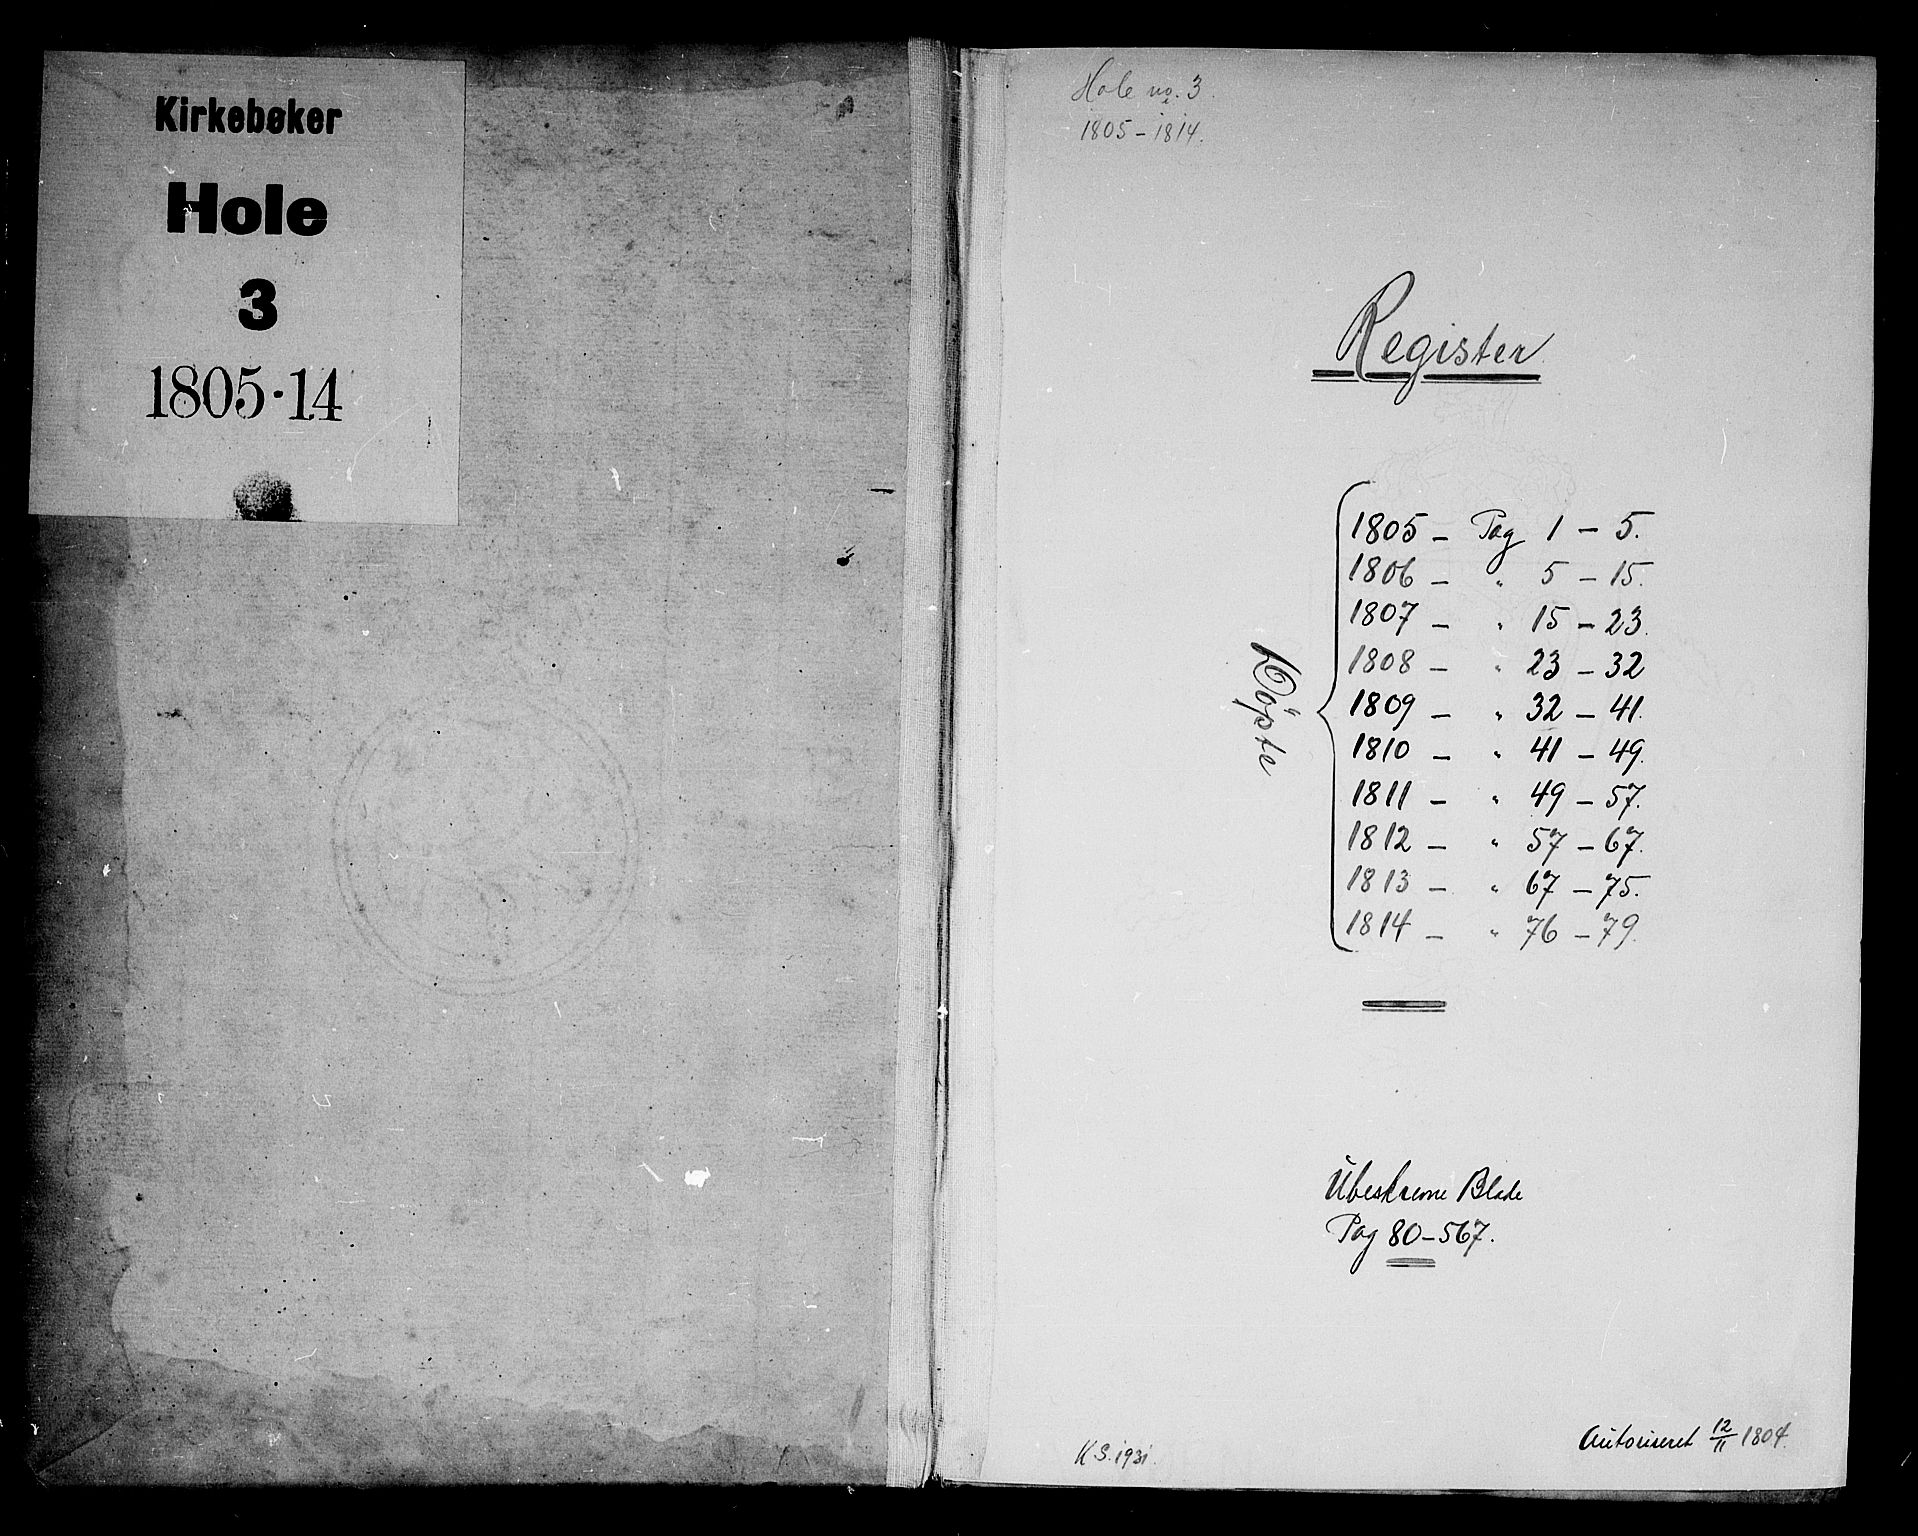 Kirkebøker
Hole
3
1805-14
Hole no. 3.
1805-1814.
Register
Döpte
1805 - Pag 1 - 5.
1806 - " 5 - 15.
1807 - " 15 - 23.
1808 - " 23 - 32
1809 - " 32 - 41.
1810 - " 41 - 49.
1811 - " 49 - 57.
1812 - " 57 - 67.
1813 - " 67 - 75.
1814 - " 76 - 79.
Ubeskrevne Blade
Pag 80-567.
K S. 1931.
Autoriseret 12/11 1804.